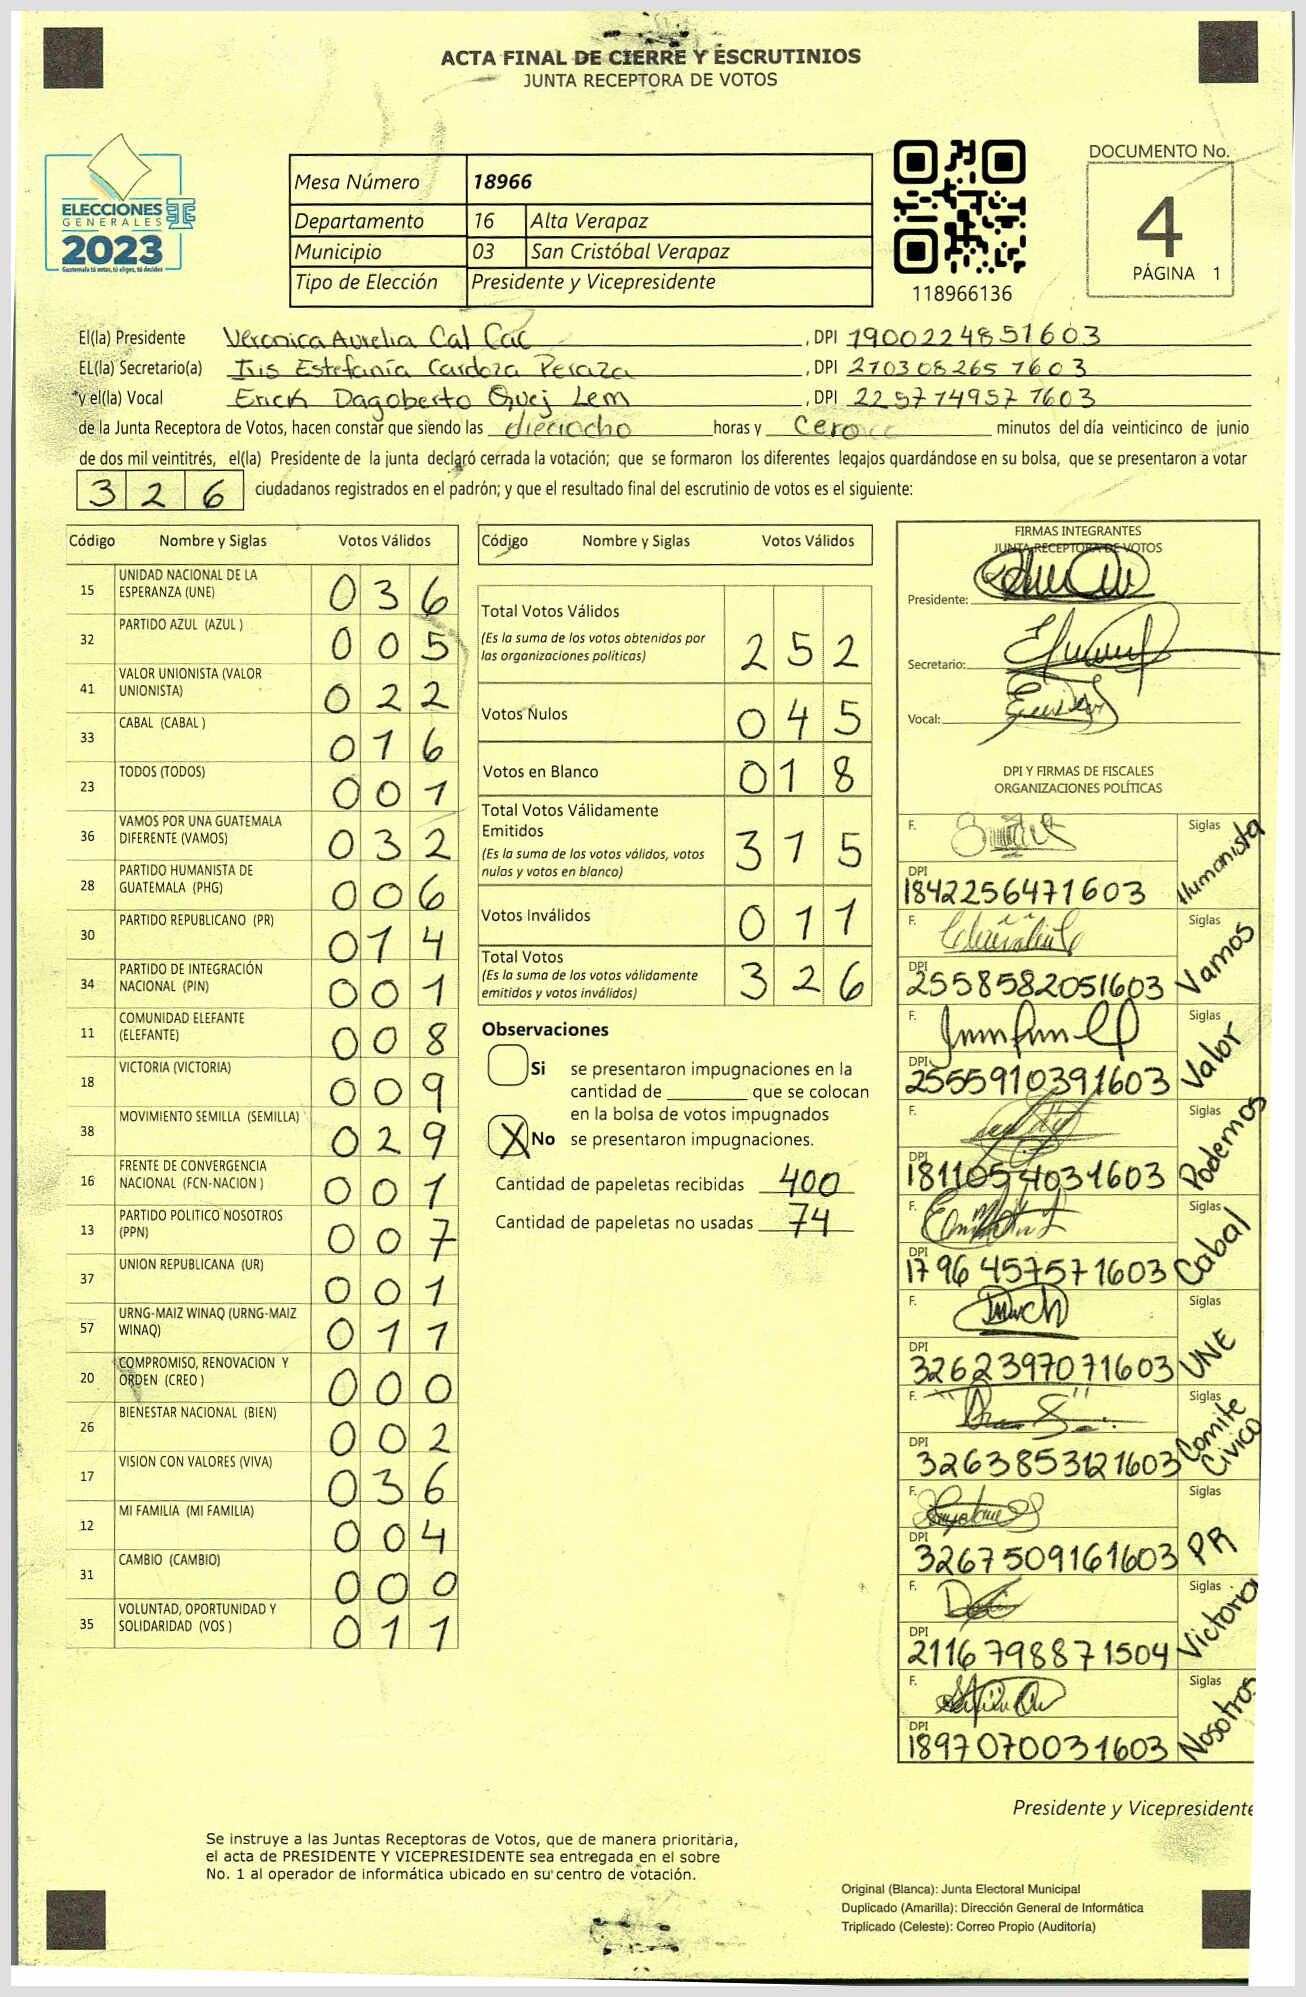 ACTA FINAL DE CIERRE Y ESCRUTINIOS
JUNTA RECEPTORA DE VOTOS
ELECCIONES
GENERALES
2023
Guatemala tú votas, tú eliges, tú decides
Mesa Número 18966
Departamento 16 Alta Verapaz
Municipio 03 San Cristóbal Verapaz
Tipo de Elección Presidente y Vicepresidente
118966136
DOCUMENTO No.
4
PÁGINA 1
El(la) Presidente Veronica Aurelia Cal Cac , DPI 1900224851603
EL(la) Secretario(a) Iris Estefanía Cardoza Peraza , DPI 2703082657603
y el(la) Vocal Erick Dagoberto Quej Lem , DPI 2257149577603
de la Junta Receptora de Votos, hacen constar que siendo las dieciocho horas y cero minutos del día veinticinco de junio
de dos mil veintitrés, el(la) Presidente de la junta declaró cerrada la votación; que se formaron los diferentes legajos guardándose en su bolsa, que se presentaron a votar
326 ciudadanos registrados en el padrón; y que el resultado final del escrutinio de votos es el siguiente:
Código Nombre y Siglas Votos Válidos
15 UNIDAD NACIONAL DE LA ESPERANZA (UNE) 036
32 PARTIDO AZUL (AZUL ) 005
41 VALOR UNIONISTA (VALOR UNIONISTA) 022
33 CABAL (CABAL ) 016
23 TODOS (TODOS) 001
36 VAMOS POR UNA GUATEMALA DIFERENTE (VAMOS) 032
28 PARTIDO HUMANISTA DE GUATEMALA (PHG) 006
30 PARTIDO REPUBLICANO (PR) 014
34 PARTIDO DE INTEGRACIÓN NACIONAL (PIN) 001
11 COMUNIDAD ELEFANTE (ELEFANTE) 008
18 VICTORIA (VICTORIA) 009
38 MOVIMIENTO SEMILLA (SEMILLA) 029
16 FRENTE DE CONVERGENCIA NACIONAL (FCN-NACION ) 001
13 PARTIDO POLITICO NOSOTROS (PPN) 007
37 UNION REPUBLICANA (UR) 001
57 URNG-MAIZ WINAQ (URNG-MAIZ WINAQ) 011
20 COMPROMISO, RENOVACION Y ORDEN (CREO ) 000
26 BIENESTAR NACIONAL (BIEN) 002
17 VISION CON VALORES (VIVA) 036
12 MI FAMILIA (MI FAMILIA) 004
31 CAMBIO (CAMBIO) 000
35 VOLUNTAD, OPORTUNIDAD Y SOLIDARIDAD (VOS ) 011
Código Nombre y Siglas Votos Válidos
Total Votos Válidos 252
(Es la suma de los votos obtenidos por
las organizaciones políticas)
Votos Nulos 045
Votos en Blanco 018
Total Votos Válidamente
Emitidos 315
(Es la suma de los votos válidos, votos
nulos y votos en blanco)
Votos Inválidos 011
Total Votos 326
(Es la suma de los votos válidamente
emitidos y votos inválidos)
Observaciones
Si se presentaron impugnaciones en la
cantidad de ________ que se colocan
en la bolsa de votos impugnados
X No se presentaron impugnaciones.
Cantidad de papeletas recibidas 400
Cantidad de papeletas no usadas 74
FIRMAS INTEGRANTES
JUNTA RECEPTORA DE VOTOS
Presidente:
Secretario:
Vocal:
DPI Y FIRMAS DE FISCALES
ORGANIZACIONES POLÍTICAS
F. Siglas Humanista
DPI 1842256471603
F. Siglas Vamos
DPI 2558582051603
F. Siglas Valor
DPI 2555910391603
F. Siglas Podemos
DPI 1811054031603
F. Siglas Cabal
DPI 1796457571603
F. Siglas UNE
DPI 3262397071603
F. Siglas Comite Civico
DPI 3263853121603
F. Siglas PR
DPI 3267509161603
F. Siglas Victoria
DPI 2116798871504
F. Siglas Nosotros
DPI 1897070031603
Presidente y Vicepresidente
Se instruye a las Juntas Receptoras de Votos, que de manera prioritaria,
el acta de PRESIDENTE Y VICEPRESIDENTE sea entregada en el sobre
No. 1 al operador de informática ubicado en su centro de votación.
Original (Blanca): Junta Electoral Municipal
Duplicado (Amarilla): Dirección General de Informática
Triplicado (Celeste): Correo Propio (Auditoría)